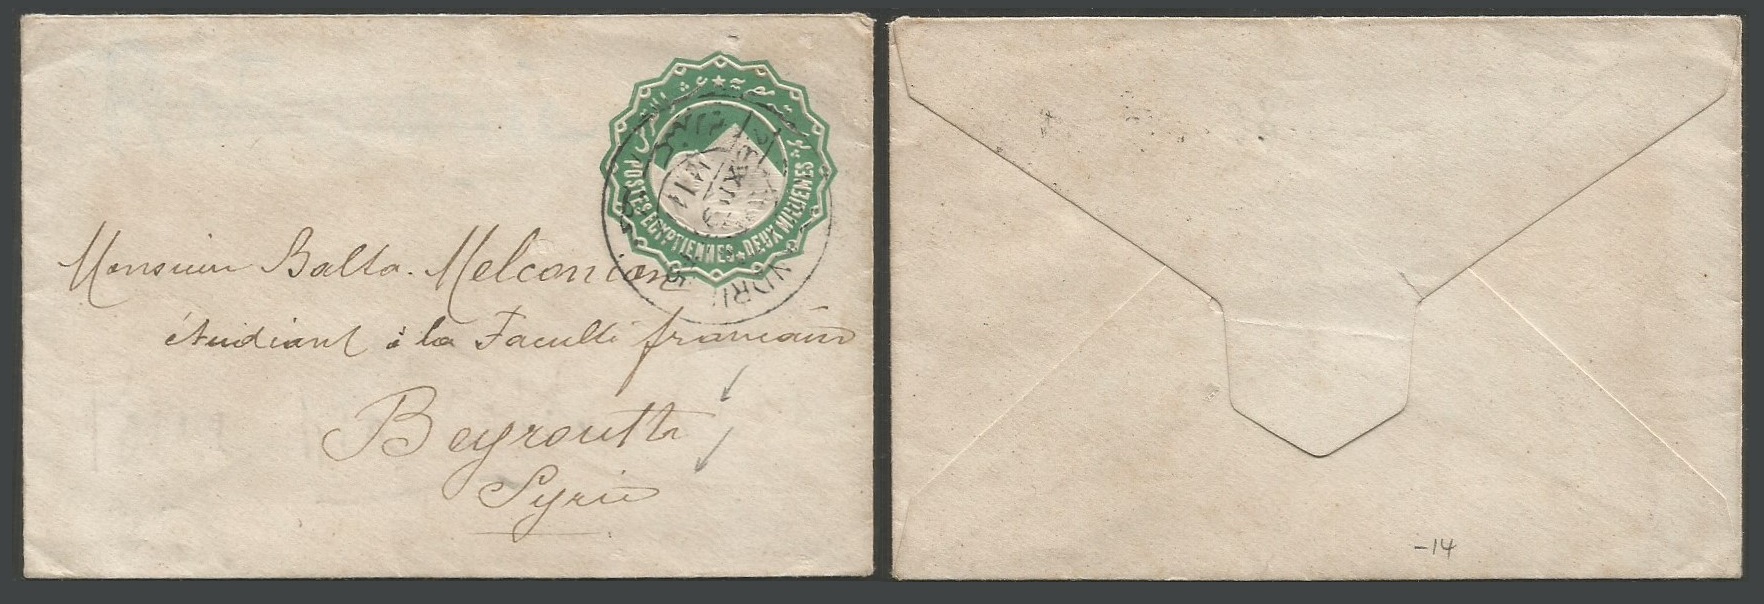 POSTES EGYPTIENNES ★ DEUX MILLIEMES
Monsieur Balta. Melconian
étudiant à la Faculté française
Beyrouth
Syrie
-14